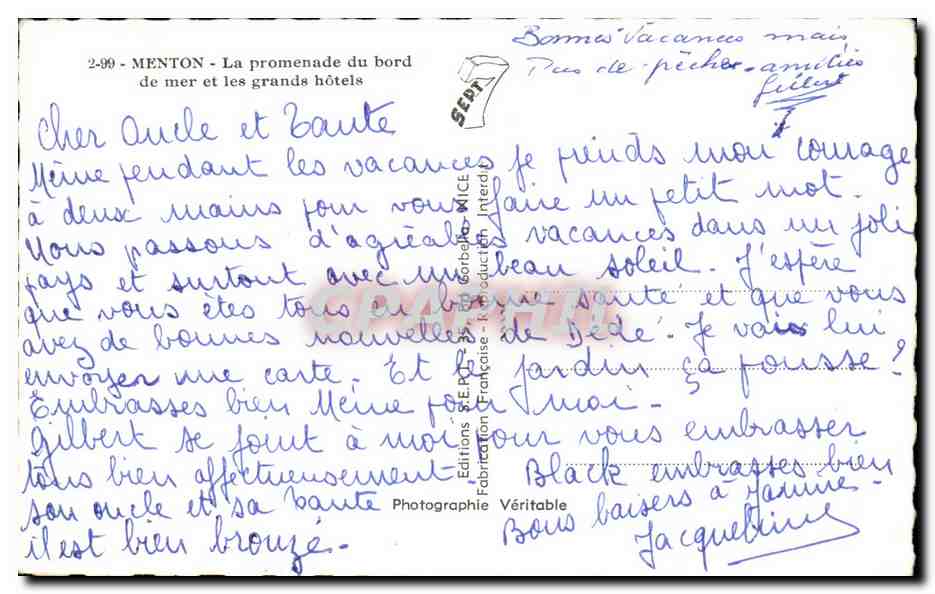 2-99 - MENTON - La promenade du bord
de mer et les grands hôtels
SEPT
7
Bonnes Vacances mais
Pas de pêcher - amitiés
Gilbert
Cher Oncle et Tante
Même pendant les vacances je prends mon courage
à deux mains pour vous faire un petit mot.
Nous passons d'agréables vacances dans un joli
pays et surtout avec un beau soleil. J'espère
que vous êtes tous en bonne santé et que vous
avez de bonnes nouvelles de Dédé. Je vais lui
envoyer une carte. Et le jardin ça pousse?
Embrasses bien Mémé pour moi -
Gilbert se joint à moi pour vous embrasser
tous bien affectueusement. Black embrasses bien
son oncle et sa tante
il est bien bronzé -
Bons baisers à Janine -
Jacqueline
Photographie Véritable
Editions S.E.P.T. - 35, Rue Gorbella - NICE
Fabrication Française - Reproduction Interdite